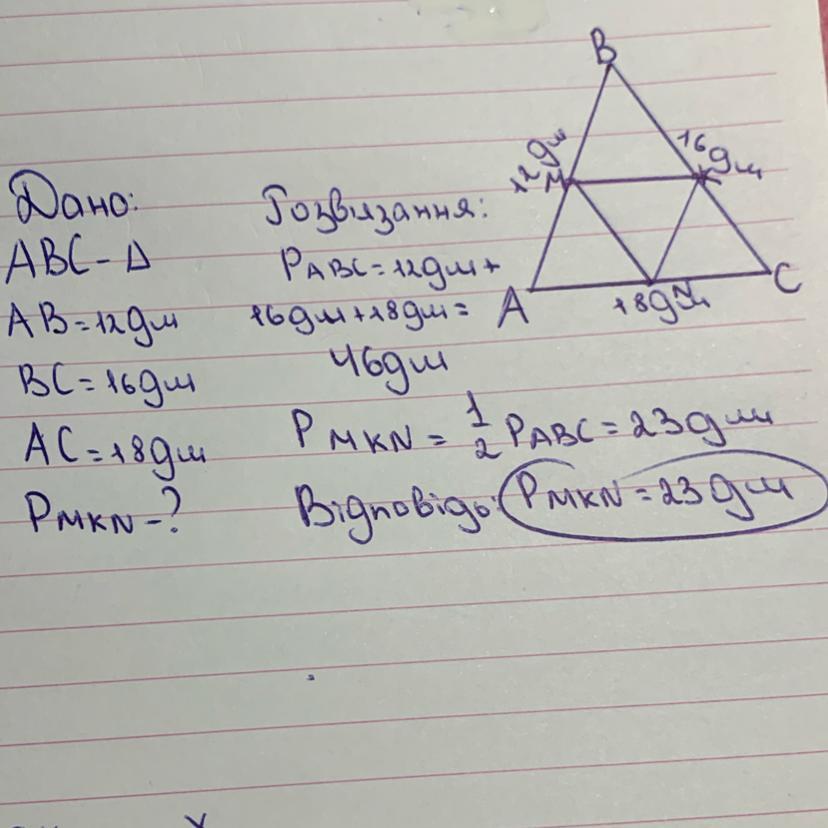 Дано:
ABC - Δ
AB = 12дм
BC = 16дм
AC = 18дм
PMKN - ?
Розвязання:
PABC = 12дм +
16дм + 18дм =
46дм
PMKN = 1/2 PABC = 23дм
Відповідь: PMKN = 23дм
B
12дм
16дм
M
K
A
N
C
18дм